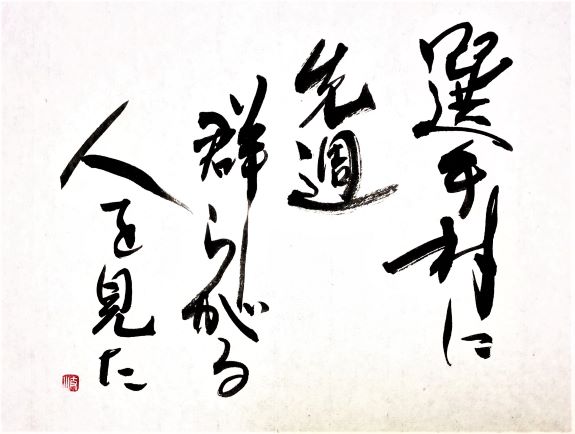 選手村に
先週
群らがる
人を見た